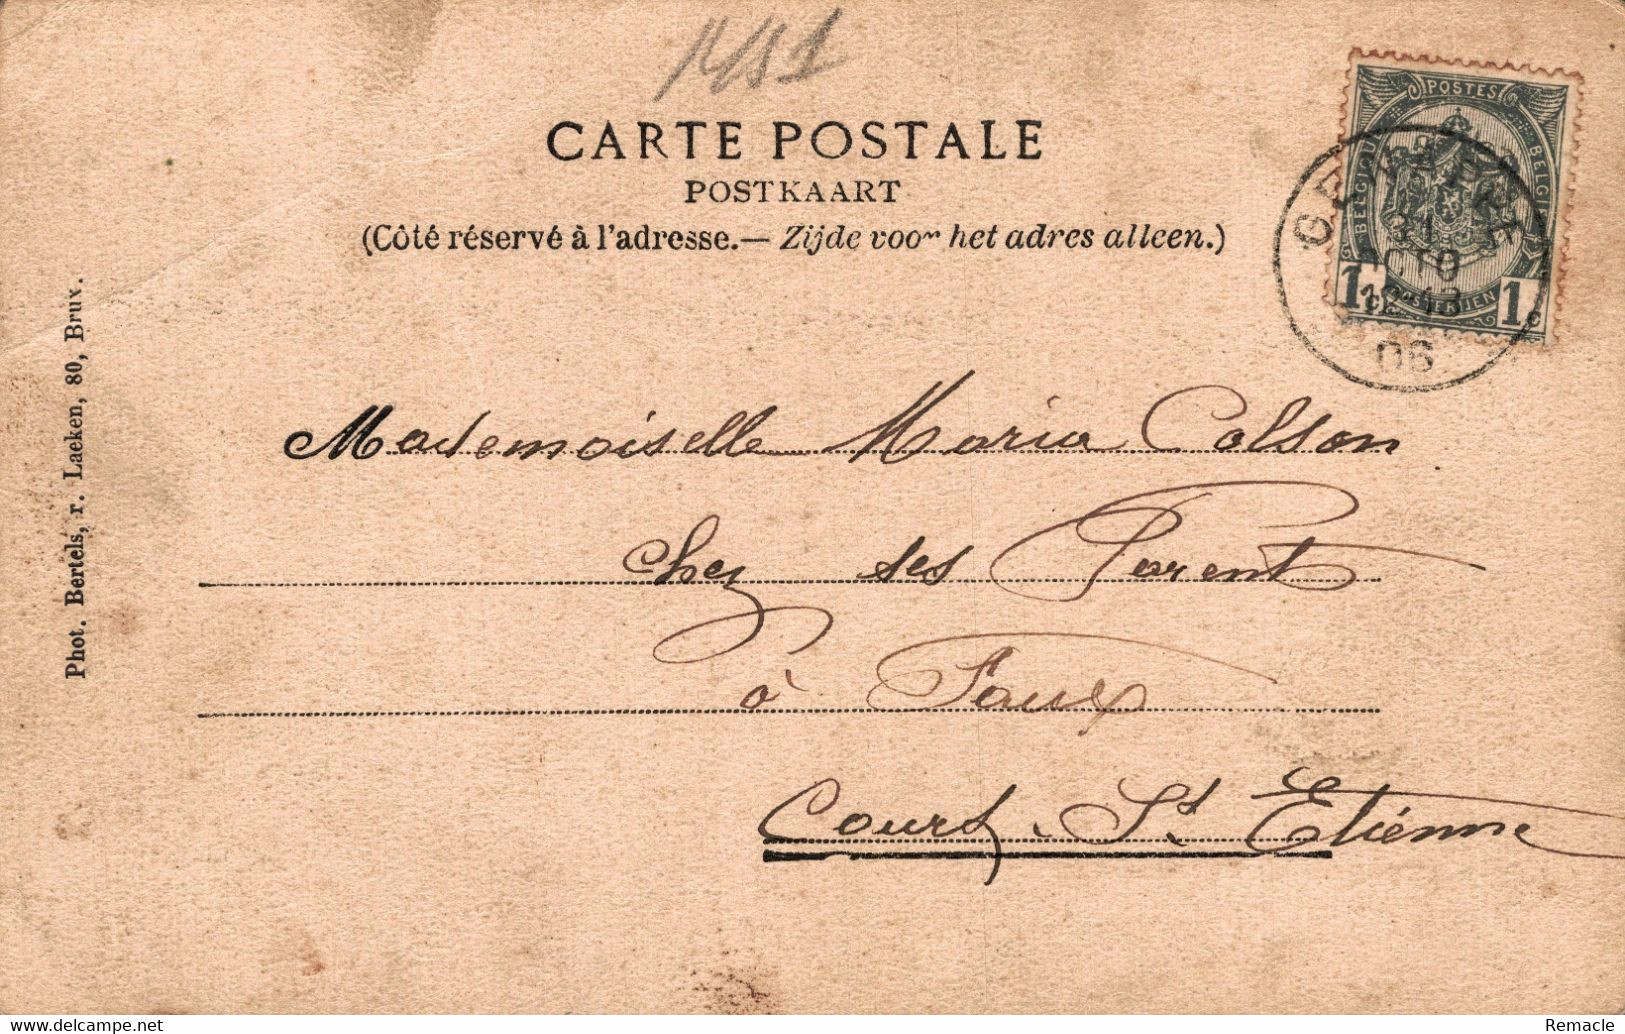 CARTE POSTALE
POSTKAART
(Côté réservé à l'adresse.— Zijde voor het adres alleen.)
POSTES
BELGIQUE BELGIË
POSTERIJEN
1c 1c
GENAPPE
31
OTO
12-13
06
Mademoiselle Maria Colson
chez ses Parent
à Faux
Court, St Etienne
Phot. Bertels, r. Laeken, 80, Brux.
delcampe.net
Remacle